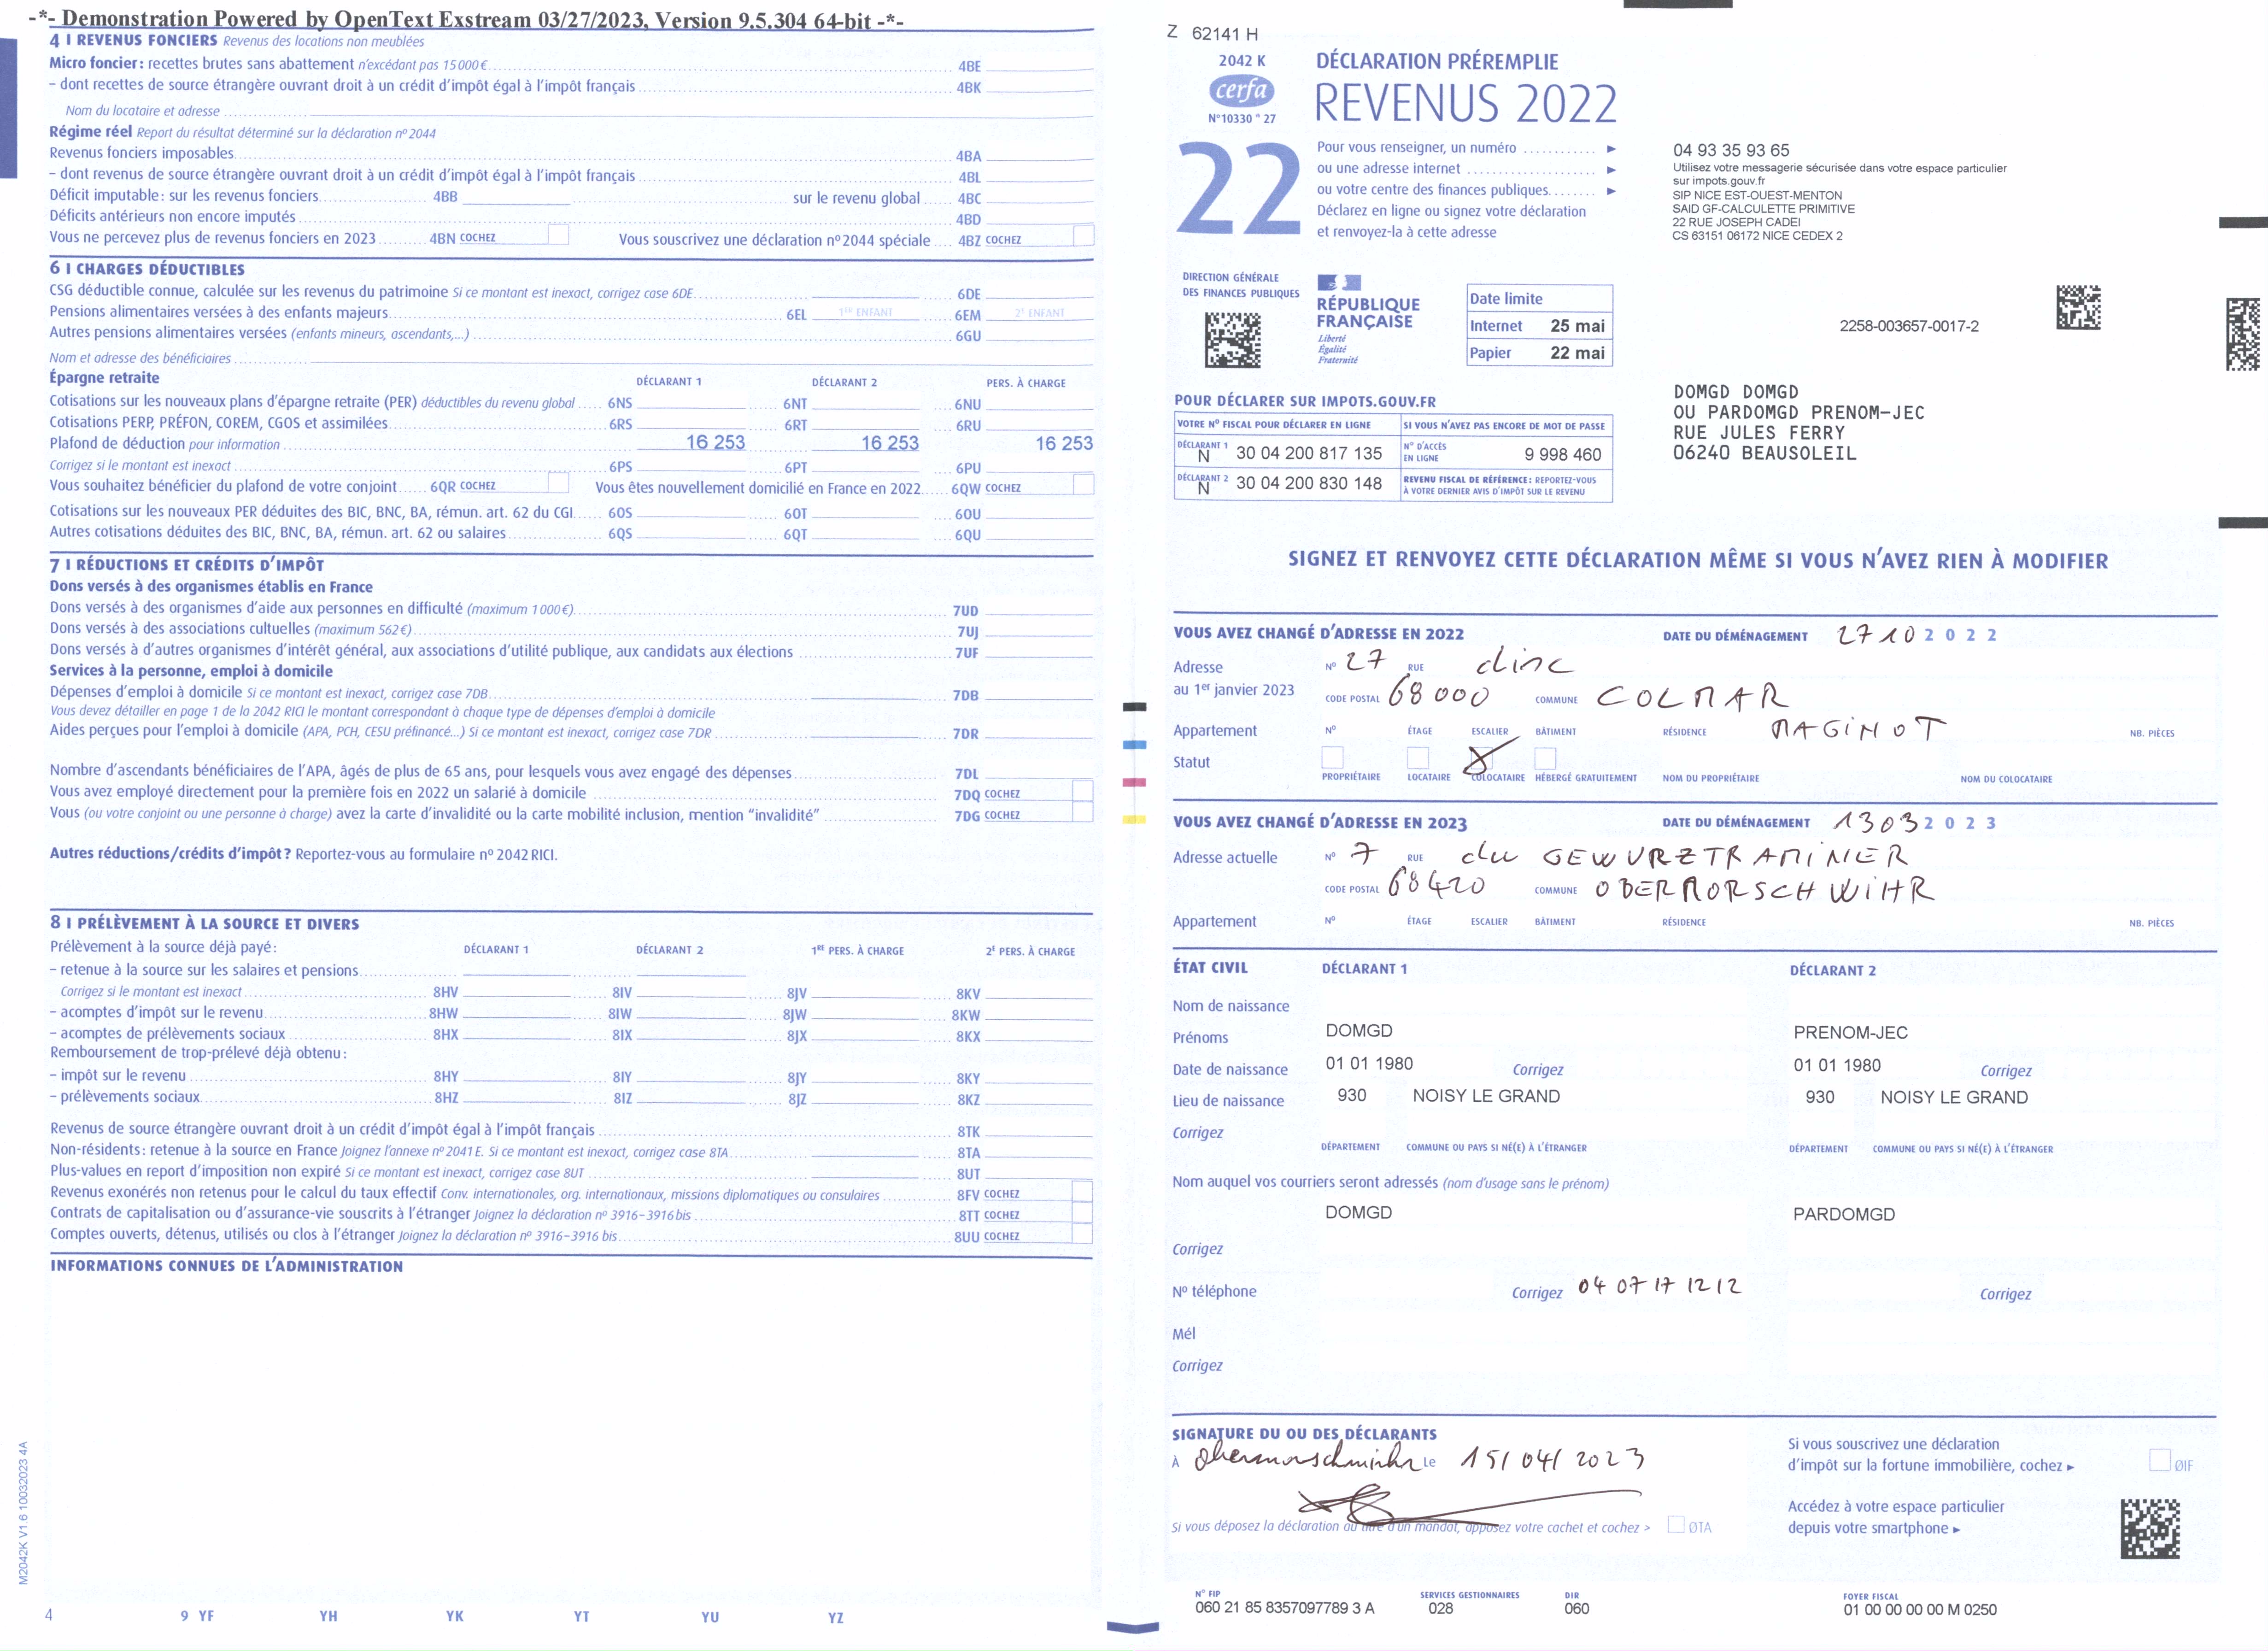 -*- Demonstration Powered by OpenText Exstream 03/27/2023, Version 9.5.304 64-bit -*-
4 I REVENUS FONCIERS Revenus des locations non meublées
Micro foncier : recettes brutes sans abattement n'excédant pas 15 000 € 4BE
– dont recettes de source étrangère ouvrant droit à un crédit d'impôt égal à l'impôt français 4BK
Nom du locataire et adresse
Régime réel Report du résultat déterminé sur la déclaration nº 2044
Revenus fonciers imposables 4BA
– dont revenus de source étrangère ouvrant droit à un crédit d'impôt égal à l'impôt français 4BL
Déficit imputable : sur les revenus fonciers 4BB sur le revenu global 4BC
Déficits antérieurs non encore imputés 4BD
Vous ne percevez plus de revenus fonciers en 2023 4BN COCHEZ Vous souscrivez une déclaration nº 2044 spéciale 4BZ COCHEZ
6 I CHARGES DÉDUCTIBLES
CSG déductible connue, calculée sur les revenus du patrimoine Si ce montant est inexact, corrigez case 6DE 6DE
Pensions alimentaires versées à des enfants majeurs 6EL 1ER ENFANT 6EM 2E ENFANT
Autres pensions alimentaires versées (enfants mineurs, ascendants,...) 6GU
Nom et adresse des bénéficiaires
Épargne retraite DÉCLARANT 1 DÉCLARANT 2 PERS. À CHARGE
Cotisations sur les nouveaux plans d'épargne retraite (PER) déductibles du revenu global 6NS 6NT 6NU
Cotisations PERP, PRÉFON, COREM, CGOS et assimilées 6RS 6RT 6RU
Plafond de déduction pour information 16 253 16 253 16 253
Corrigez si le montant est inexact 6PS 6PT 6PU
Vous souhaitez bénéficier du plafond de votre conjoint 6QR COCHEZ Vous êtes nouvellement domicilié en France en 2022 6QW COCHEZ
Cotisations sur les nouveaux PER déduites des BIC, BNC, BA, rémun. art. 62 du CGI 6OS 6OT 6OU
Autres cotisations déduites des BIC, BNC, BA, rémun. art. 62 ou salaires 6QS 6QT 6QU
7 I RÉDUCTIONS ET CRÉDITS D'IMPÔT
Dons versés à des organismes établis en France
Dons versés à des organismes d'aide aux personnes en difficulté (maximum 1 000 €) 7UD
Dons versés à des associations cultuelles (maximum 562 €) 7UJ
Dons versés à d'autres organismes d'intérêt général, aux associations d'utilité publique, aux candidats aux élections 7UF
Services à la personne, emploi à domicile
Dépenses d'emploi à domicile Si ce montant est inexact, corrigez case 7DB 7DB
Vous devez détailler en page 1 de la 2042 RICI le montant correspondant à chaque type de dépenses d'emploi à domicile
Aides perçues pour l'emploi à domicile (APA, PCH, CESU préfinancé...) Si ce montant est inexact, corrigez case 7DR 7DR
Nombre d'ascendants bénéficiaires de l'APA, âgés de plus de 65 ans, pour lesquels vous avez engagé des dépenses 7DL
Vous avez employé directement pour la première fois en 2022 un salarié à domicile 7DQ COCHEZ
Vous (ou votre conjoint ou une personne à charge) avez la carte d'invalidité ou la carte mobilité inclusion, mention "invalidité" 7DG COCHEZ
Autres réductions/crédits d'impôt ? Reportez-vous au formulaire nº 2042 RICI.
8 I PRÉLÈVEMENT À LA SOURCE ET DIVERS
Prélèvement à la source déjà payé : DÉCLARANT 1 DÉCLARANT 2 1RE PERS. À CHARGE 2E PERS. À CHARGE
– retenue à la source sur les salaires et pensions
Corrigez si le montant est inexact 8HV 8IV 8JV 8KV
– acomptes d'impôt sur le revenu 8HW 8IW 8JW 8KW
– acomptes de prélèvements sociaux 8HX 8IX 8JX 8KX
Remboursement de trop-prélevé déjà obtenu :
– impôt sur le revenu 8HY 8IY 8JY 8KY
– prélèvements sociaux 8HZ 8IZ 8JZ 8KZ
Revenus de source étrangère ouvrant droit à un crédit d'impôt égal à l'impôt français 8TK
Non-résidents : retenue à la source en France Joignez l'annexe nº 2041 E. Si ce montant est inexact, corrigez case 8TA 8TA
Plus-values en report d'imposition non expiré Si ce montant est inexact, corrigez case 8UT 8UT
Revenus exonérés non retenus pour le calcul du taux effectif Conv. internationales, org. internationaux, missions diplomatiques ou consulaires 8FV COCHEZ
Contrats de capitalisation ou d'assurance-vie souscrits à l'étranger Joignez la déclaration nº 3916–3916 bis 8TT COCHEZ
Comptes ouverts, détenus, utilisés ou clos à l'étranger Joignez la déclaration nº 3916–3916 bis 8UU COCHEZ
INFORMATIONS CONNUES DE L'ADMINISTRATION
M2042K V1 6 10032023 4A
4 9 YF YH YK YT YU YZ
Z 62141 H
2042 K
cerfa
N°10330 * 27
DÉCLARATION PRÉREMPLIE
REVENUS 2022
22
Pour vous renseigner, un numéro ► 04 93 35 93 65
ou une adresse internet ► Utilisez votre messagerie sécurisée dans votre espace particulier
sur impots.gouv.fr
ou votre centre des finances publiques ► SIP NICE EST-OUEST-MENTON
SAID GF-CALCULETTE PRIMITIVE
22 RUE JOSEPH CADEI
CS 63151 06172 NICE CEDEX 2
Déclarez en ligne ou signez votre déclaration
et renvoyez-la à cette adresse
DIRECTION GÉNÉRALE
DES FINANCES PUBLIQUES
RÉPUBLIQUE
FRANÇAISE
Liberté
Égalité
Fraternité
Date limite
Internet 25 mai
Papier 22 mai
2258-003657-0017-2
DOMGD DOMGD
OU PARDOMGD PRENOM-JEC
RUE JULES FERRY
06240 BEAUSOLEIL
POUR DÉCLARER SUR IMPOTS.GOUV.FR
VOTRE Nº FISCAL POUR DÉCLARER EN LIGNE SI VOUS N'AVEZ PAS ENCORE DE MOT DE PASSE
DÉCLARANT 1 N 30 04 200 817 135 N° D'ACCÈS EN LIGNE 9 998 460
DÉCLARANT 2 N 30 04 200 830 148 REVENU FISCAL DE RÉFÉRENCE : REPORTEZ-VOUS
À VOTRE DERNIER AVIS D'IMPÔT SUR LE REVENU
SIGNEZ ET RENVOYEZ CETTE DÉCLARATION MÊME SI VOUS N'AVEZ RIEN À MODIFIER
VOUS AVEZ CHANGÉ D'ADRESSE EN 2022 DATE DU DÉMÉNAGEMENT 27 10 2 0 2 2
Adresse Nº 27 RUE dinc
au 1er janvier 2023 CODE POSTAL 68000 COMMUNE COLMAR
Appartement Nº ÉTAGE ESCALIER BÂTIMENT RÉSIDENCE MAGINOT NB. PIÈCES
Statut X
PROPRIÉTAIRE LOCATAIRE COLOCATAIRE HÉBERGÉ GRATUITEMENT NOM DU PROPRIÉTAIRE NOM DU COLOCATAIRE
VOUS AVEZ CHANGÉ D'ADRESSE EN 2023 DATE DU DÉMÉNAGEMENT 13 03 2 0 2 3
Adresse actuelle Nº 7 RUE du GEWURZTRAMINER
CODE POSTAL 68420 COMMUNE OBERMORSCHWIHR
Appartement Nº ÉTAGE ESCALIER BÂTIMENT RÉSIDENCE NB. PIÈCES
ÉTAT CIVIL DÉCLARANT 1 DÉCLARANT 2
Nom de naissance
Prénoms DOMGD PRENOM-JEC
Date de naissance 01 01 1980 Corrigez 01 01 1980 Corrigez
Lieu de naissance 930 NOISY LE GRAND 930 NOISY LE GRAND
Corrigez
DÉPARTEMENT COMMUNE OU PAYS SI NÉ(E) À L'ÉTRANGER DÉPARTEMENT COMMUNE OU PAYS SI NÉ(E) À L'ÉTRANGER
Nom auquel vos courriers seront adressés (nom d'usage sans le prénom)
DOMGD PARDOMGD
Corrigez
Nº téléphone Corrigez 04 07 17 12 12 Corrigez
Mél
Corrigez
SIGNATURE DU OU DES DÉCLARANTS
À obermorschwihr Le 15/04/2023
Si vous déposez la déclaration au titre d'un mandat, apposez votre cachet et cochez > ØTA
Si vous souscrivez une déclaration
d'impôt sur la fortune immobilière, cochez ► ØIF
Accédez à votre espace particulier
depuis votre smartphone ►
N° FIP SERVICES GESTIONNAIRES DIR FOYER FISCAL
060 21 85 8357097789 3 A 028 060 01 00 00 00 00 M 0250